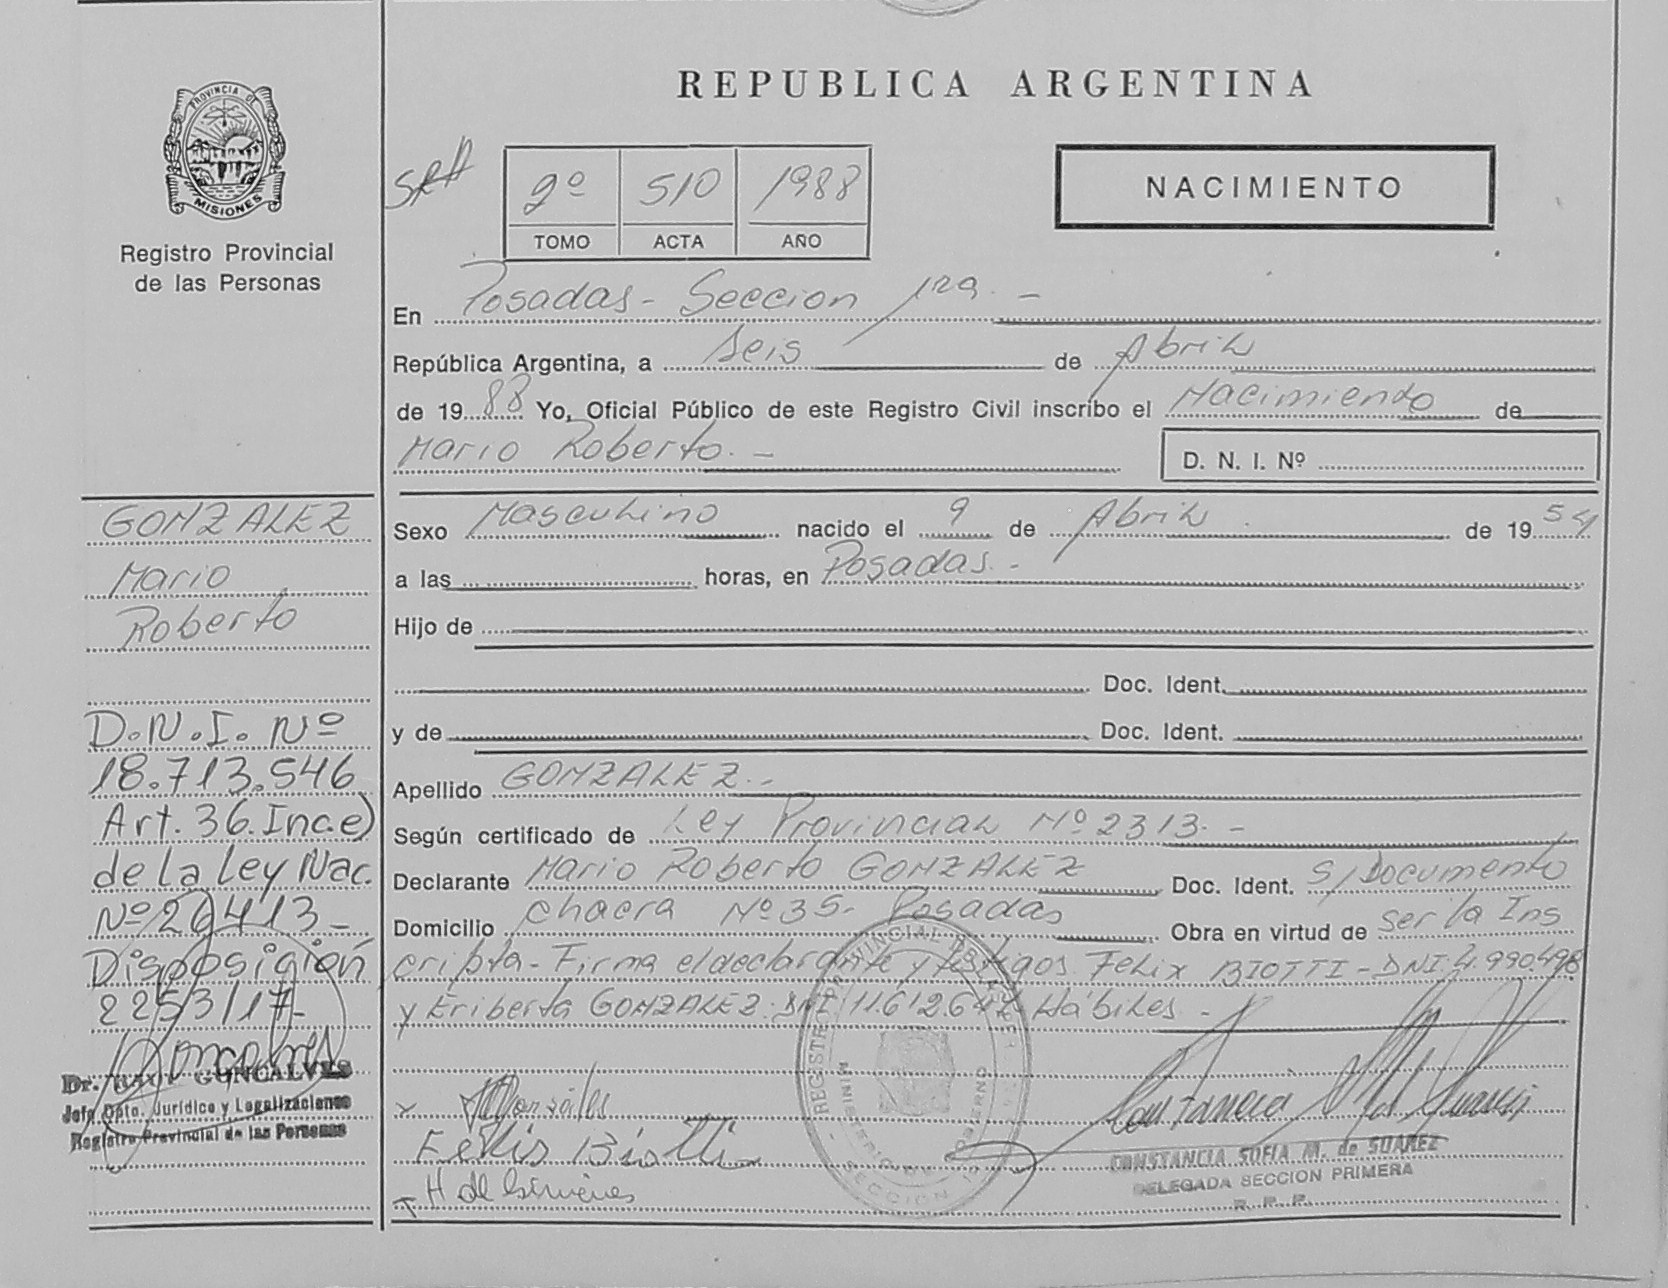 REPUBLICA ARGENTINA
PROVINCIA DE
MISIONES
Registro Provincial
de las Personas
2º 510 1988
TOMO ACTA AÑO
NACIMIENTO
En Posadas - Seccion 1ra. -
República Argentina, a seis de Abril
de 1988 Yo, Oficial Público de este Registro Civil inscribo el Nacimiento de
Mario Roberto. -
D. N. I. Nº
GONZALEZ
Mario
Roberto
D.N.I. Nº
18.713.546
Art. 36. Inc.e)
de la Ley Nac.
Nº 26413 -
Disposición
2253/17 -
Dr. RAUL GONCALVES
Jefe Dpto. Jurídico y Legalizaciones
Registro Provincial de las Personas
Sexo Masculino nacido el 9 de Abril de 1954
a las horas, en Posadas. -
Hijo de
Doc. Ident.
y de Doc. Ident.
Apellido GONZALEZ. -
Según certificado de Ley Provincial Nº 2313. -
Declarante Mario Roberto GONZALEZ Doc. Ident. S/Documento
Domicilio chacra Nº 35 - Posadas Obra en virtud de ser la Ins
cripta - Firma el declarante y testigos Felix BIOTTI - DNI. 4.990.498
y Eriberta GONZALEZ. DNI 11.612.642 Hábiles -
Felix Biotti
CONSTANCIA SOFIA M. de SUAREZ
DELEGADA SECCION PRIMERA
R. P. P.